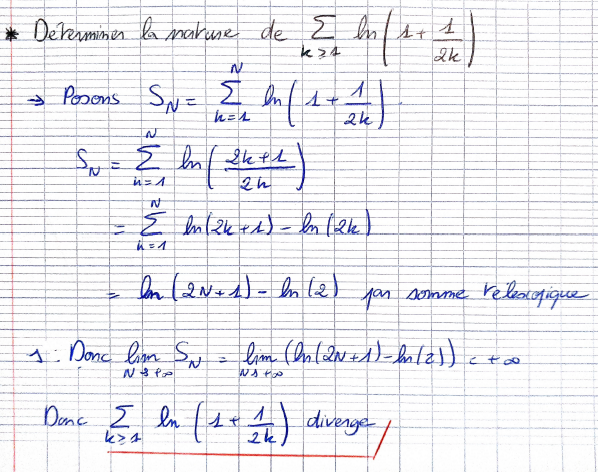 * Déterminer la nature de ∑_{k≥1} ln(1 + 1/2k)
→ Posons S_N = ∑_{k=1}^{N} ln(1 + 1/2k).
S_N = ∑_{k=1}^{N} ln((2k+1)/2k)
= ∑_{k=1}^{N} ln(2k+1) - ln(2k)
= ln(2N+1) - ln(2) par somme télescopique
Donc lim_{N→+∞} S_N = lim_{N→+∞} (ln(2N+1) - ln(2)) = +∞
Donc ∑_{k≥1} ln(1 + 1/2k) diverge